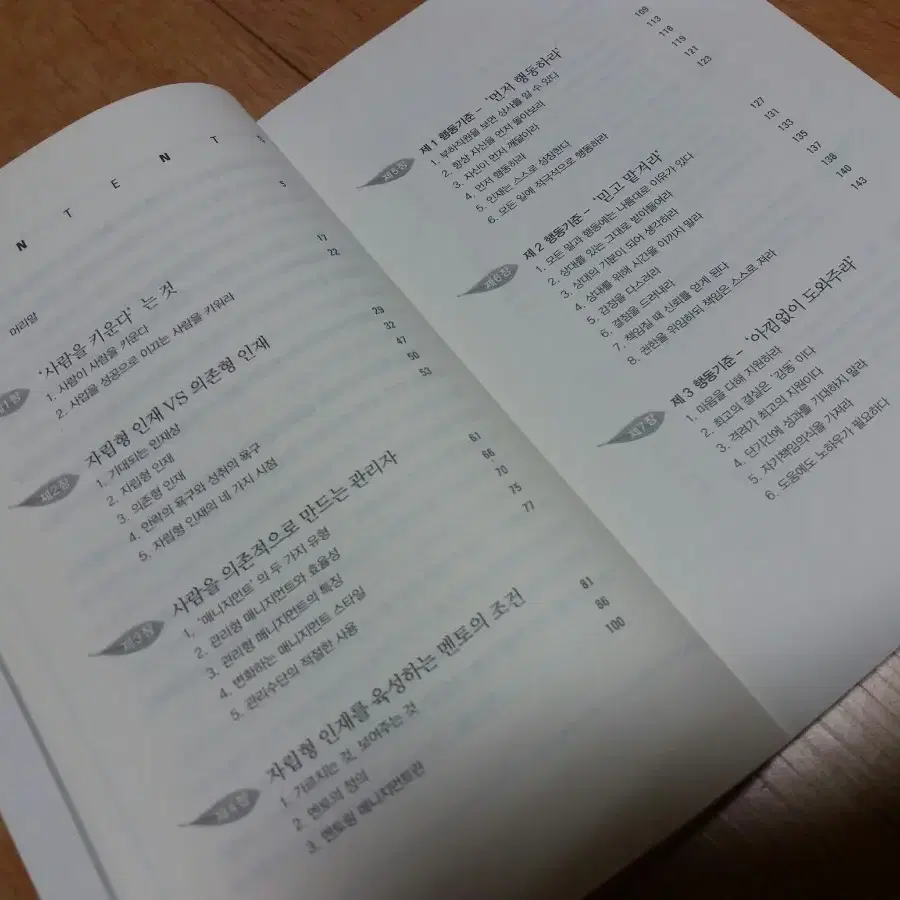 N T E N T
머리말 5
제1장 '사람을 키운다'는 것
1. 사람이 사람을 키운다 17
2. 사업을 성공으로 이끄는 사람을 키워라 22
제2장 자립형 인재 VS 의존형 인재
1. 기대되는 인재상 29
2. 자립형 인재 32
3. 의존형 인재 47
4. 안락의 욕구와 성취의 욕구 50
5. 자립형 인재의 네 가지 시점 53
제3장 사람을 의존적으로 만드는 관리자
1. '매니지먼트'의 두 가지 유형 61
2. 관리형 매니지먼트와 효율성 66
3. 관리형 매니지먼트의 특징 70
4. 변화하는 매니지먼트 스타일 75
5. 관리수단의 적절한 사용 77
제4장 자립형 인재를 육성하는 멘토의 조건
1. 가르치는 것, 보여주는 것 81
2. 멘토의 정의 86
3. 멘토링 매니지먼트란 100
제5장 제1 행동기준 - '먼저 행동하라'
1. 부하직원을 보면 상사를 알 수 있다 109
2. 항상 자신을 먼저 돌아보라 113
3. 자신이 먼저 깨달아라 118
4. 먼저 행동하라 119
5. 인재는 스스로 성장한다 121
6. 모든 일에 적극적으로 행동하라 123
제6장 제2 행동기준 - '믿고 맡겨라'
1. 모든 일과 행동에는 나름대로 이유가 있다 127
2. 상대를 있는 그대로 받아들여라 131
3. 상대의 기분이 되어 생각하라 133
4. 상대를 위해 시간을 아끼지 말라 135
5. 감정을 다스려라 137
6. 결점을 드러내라 138
7. 책임질 때 신뢰를 얻게 된다 140
8. 권한을 위임하되 책임은 스스로 져라 143
제7장 제3 행동기준 - '아낌없이 도와주라'
1. 마음을 다해 지원하라
2. 최고의 결실은 '감동'이다
3. 격려가 최고의 지원이다
4. 단기간에 성과를 기대하지 말라
5. 자기책임의식을 가져라
6. 도움에도 노하우가 필요하다